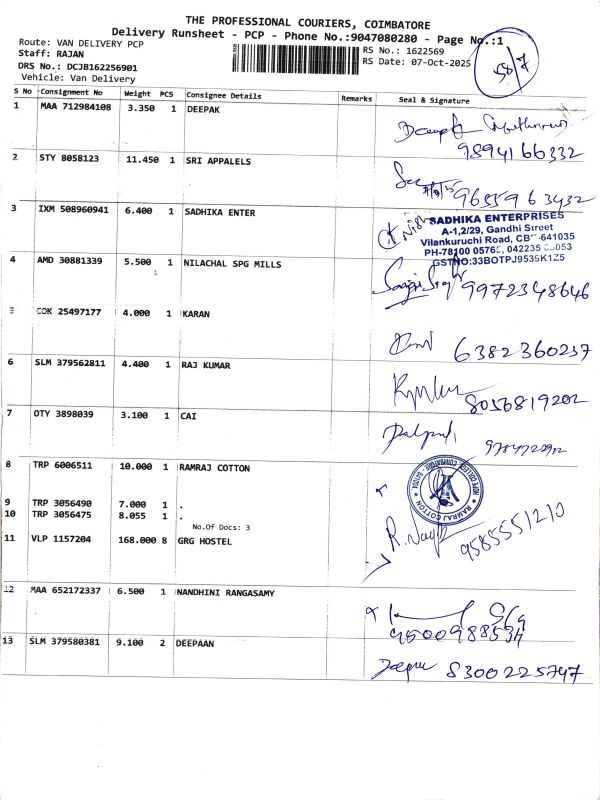 THE PROFESSIONAL COURIERS, COIMBATORE
Delivery Runsheet - PCP - Phone No.:9047080280 - Page No.:1
Route: VAN DELIVERY PCP
Staff: RAJAN
DRS No.: DCJB162256901
Vehicle: Van Delivery
RS No.: 1622569
RS Date: 07-Oct-2025
58/7
S No Consignment No Weight PCS Consignee Details Remarks Seal & Signature
1 MAA 712984108 3.350 1 DEEPAK
9894166332
2 STY 8058123 11.450 1 SRI APPALELS
9655963432
3 IXM 508960941 6.400 1 SADHIKA ENTER
SADHIKA ENTERPRISES
A-1,2/29, Gandhi Street
Vilankuruchi Road, 641035
PH-78100
GSTNO:33BOTPJ9539K1Z5
4 AMD 30881339 5.500 1 NILACHAL SPG MILLS
9972348646
5 COK 25497177 4.000 1 KARAN
6382360237
6 SLM 379562811 4.400 1 RAJ KUMAR
8056819202
7 OTY 3898039 3.100 1 CAI
8 TRP 6006511 10.000 1 RAMRAJ COTTON
RAMRAJ COTTON
9 TRP 3056490 7.000 1 .
10 TRP 3056475 8.055 1 .
No.Of Docs: 3
11 VLP 1157204 168.000 8 GRG HOSTEL
9585551210
12 MAA 652172337 6.500 1 NANDHINI RANGASAMY
9500988534
13 SLM 379580381 9.100 2 DEEPAAN
8300225747